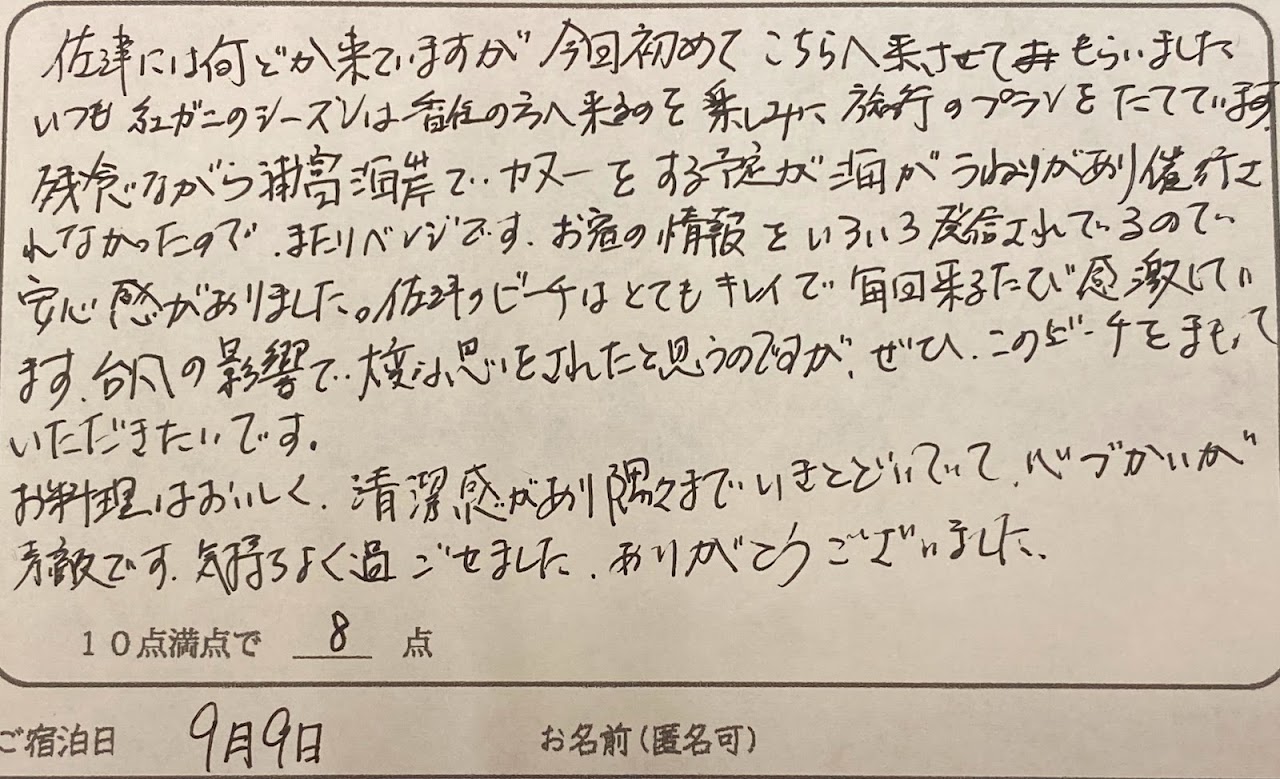 佐津には何どか来ていますが 今回初めて こちらへ来させて もらいました
いつも 紅ガニのシーズンは香住の方へ来るのを 楽しみに 旅行のプランをたてています。
残念ながら浦富海岸で、カヌーをする予定が海がうねりがあり催行さ
れなかったので、またリベンジです。お宿の情報をいろいろ発信されているので
安心感がありました。佐津のビーチはとてもキレイで 毎回来るたび感激してい
ます。台風の影響で、大変な思いをされたと思うのですが、ぜひ、このビーチをまもって
いただきたいです。
お料理はおいしく、清潔感があり隅々までいきとどいていて、心づかいが
素敵です。気持ちよく過ごせました。ありがとうございました。
10点満点で 8 点
ご宿泊日 9月9日 お名前(匿名可)